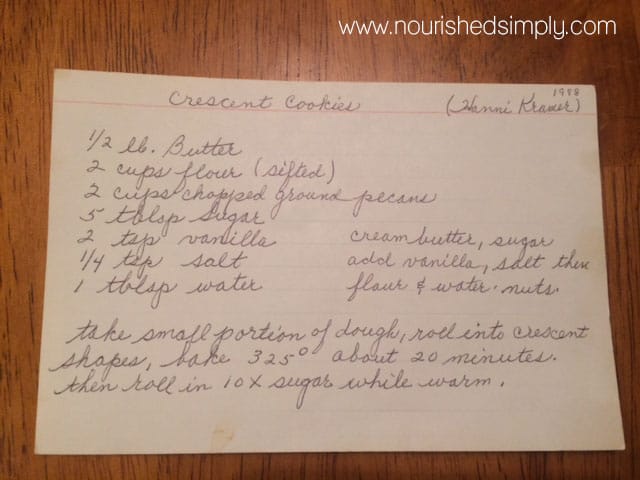 www.nourishedsimply.com
1988
Crescent Cookies (Hanni Kramer)
1/2 lb. Butter
2 cups flour (sifted)
2 cups chopped ground pecans
5 tblsp sugar
2 tsp vanilla
1/4 tsp salt
1 tblsp water
cream butter, sugar
add vanilla, salt then
flour & water. nuts.
take small portion of dough, roll into crescent
shapes, bake 325° about 20 minutes.
then roll in 10X sugar while warm.